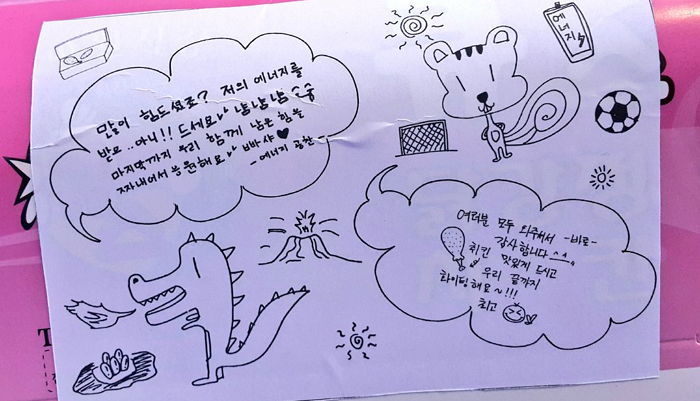 많이 힘드셨죠? 저의 에너지를
받으..아니!! 드세요 냠냠냠 슝슝
마지막까지 우리 함께 남은 힘을
짜내어서 응원해요 빠샤♥
- 에너지
에너지
여러분 모두 와주셔서 -바로-
감사합니다^^
치킨 맛있게 드시고
우리 끝까지
화이팅해요~!!!
최고